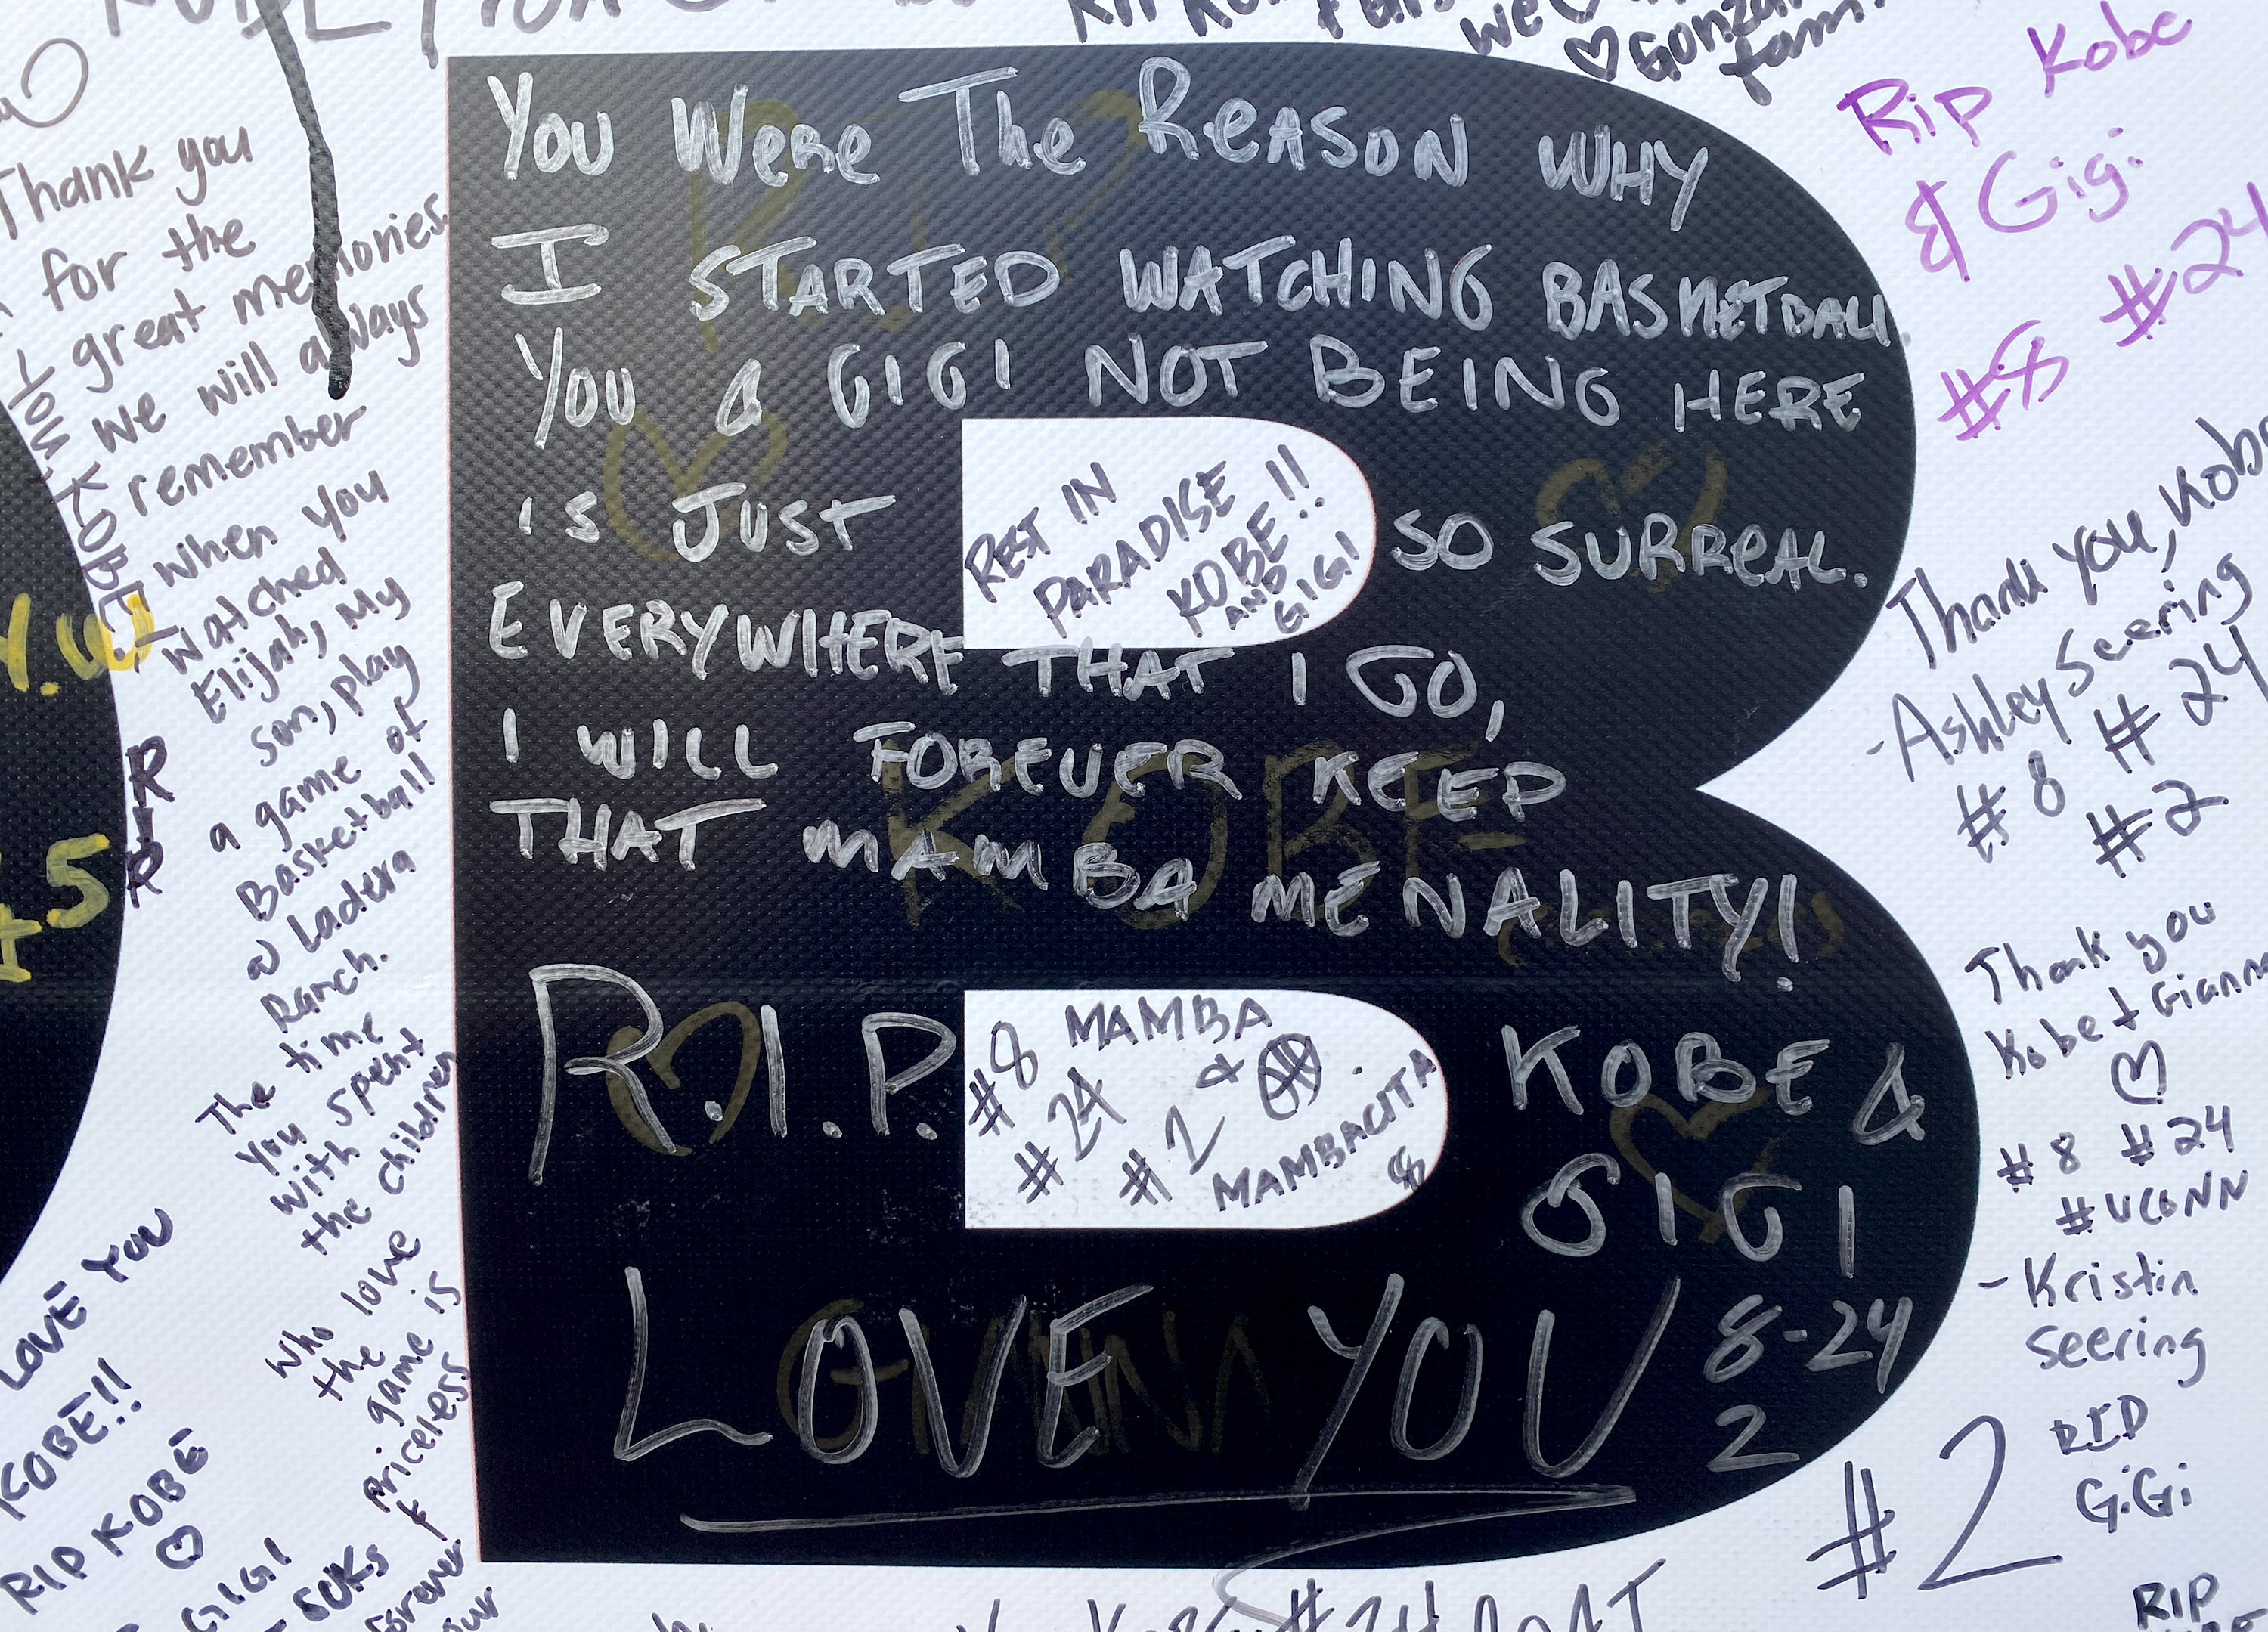 Thank you
for the
great memories.
we will always
remember
when you
watched
Elijah, My
son, play
a game of
Basketball
@ Ladera
Ranch.
The time
you spent
with
the children
who love
the game is
priceless
forever
our
YOU KOBE!
R.I.P
LOVE YOU
KOBE!!
RIP KOBE
♡
GIGI
SUKS
You Were The Reason WHY
I STARTED WATCHING BASKETBALL
YOU & GIGI NOT BEING HERE
IS JUST SO SURREAL.
EVERYWHERE THAT I GO,
I WILL FOREVER KEEP
THAT MAMBA MENALITY!
R.I.P. KOBE &
GIGI
LOVE YOU 8-24
2
REST IN
PARADISE
KOBE!!
AND
GIGI
#8 MAMBA
#24 &
#2 MAMBACITA
R.I.P
KOBE
We
♡ Gonzal
fam.
Rip Kobe
& Gigi
#8 #24
Thank you, Kobe
-Ashley Seering
#8 #24
#2
Thank you
Kobe + Gianna
♡
#8 #24
#UCONN
-Kristin
Seering
#2
RIP
GiGi
RIP
#24